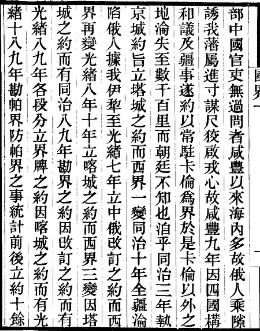 國界一
部中國官吏無過問者咸豐以來海內多故俄人乘隙
誘我藩屬進寸謀尺狡啟戎心故咸豐九年因四國構
和議及疆事遂約以常駐卡倫爲界於是卡倫以外之
地淪失至數千百里而朝廷不知也洎乎同治三年執
京城約旨立塔城之約而西界一變同治十年全疆淪
陷俄人據我伊犂至光緒七年立中俄改訂之約而西
界再變光緒八年十年立喀城之約而西界三變因塔
城之約而有同治八九年勘界之約因改訂之約而有
光緒八九年各段分立界牌之約因喀城之約而有光
緒十八九年勘帕界防帕界之事統計前後立約十餘